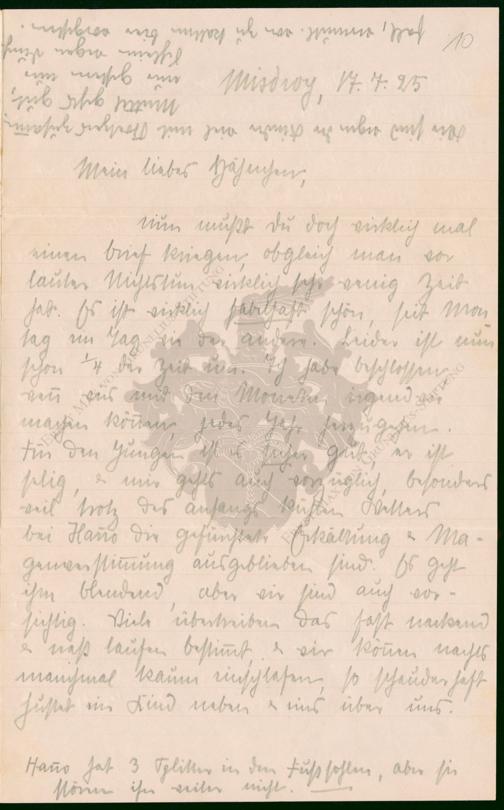 10
Misdroy, 17. 7. 25
Mein liebes Hähnchen,
nun mußt Du doch wirklich mal
einen Brief kriegen, obgleich man vor
lauter Nichtstun wirklich sehr wenig Zeit
hat. Es ist wirklich fabelhaft schön, seit Mon
tag ein Tag wie der andere. Leider ist nun
schon 1/4 der Zeit um. Ich habe beschlossen,
wenn wir es mit den Moneten irgend wie
machen können, jedes Jahr herzugehen.
Für den Jungen ist es sicher gut, er ist
selig, & mir gehts auch vorzüglich, besonders
weil trotz des anfangs kühlen Wetters
bei Hanno die gefürchtete Erkältung & Ma-
genverstimmung ausgeblieben sind. Es geht
ihm blendend, aber wir sind auch vor-
sichtig. Viele übertreiben das fast nackend
& naß laufen bestimmt, & wir können nachts
manchmal kaum einschlafen, so schauderhaft
hustet ein Kind neben & eins über uns.
Hanno hat 3 Splitter in den Fußsohlen, aber sie
stören ihn weiter nicht.
Wir sind wegen der Kinder viel mit